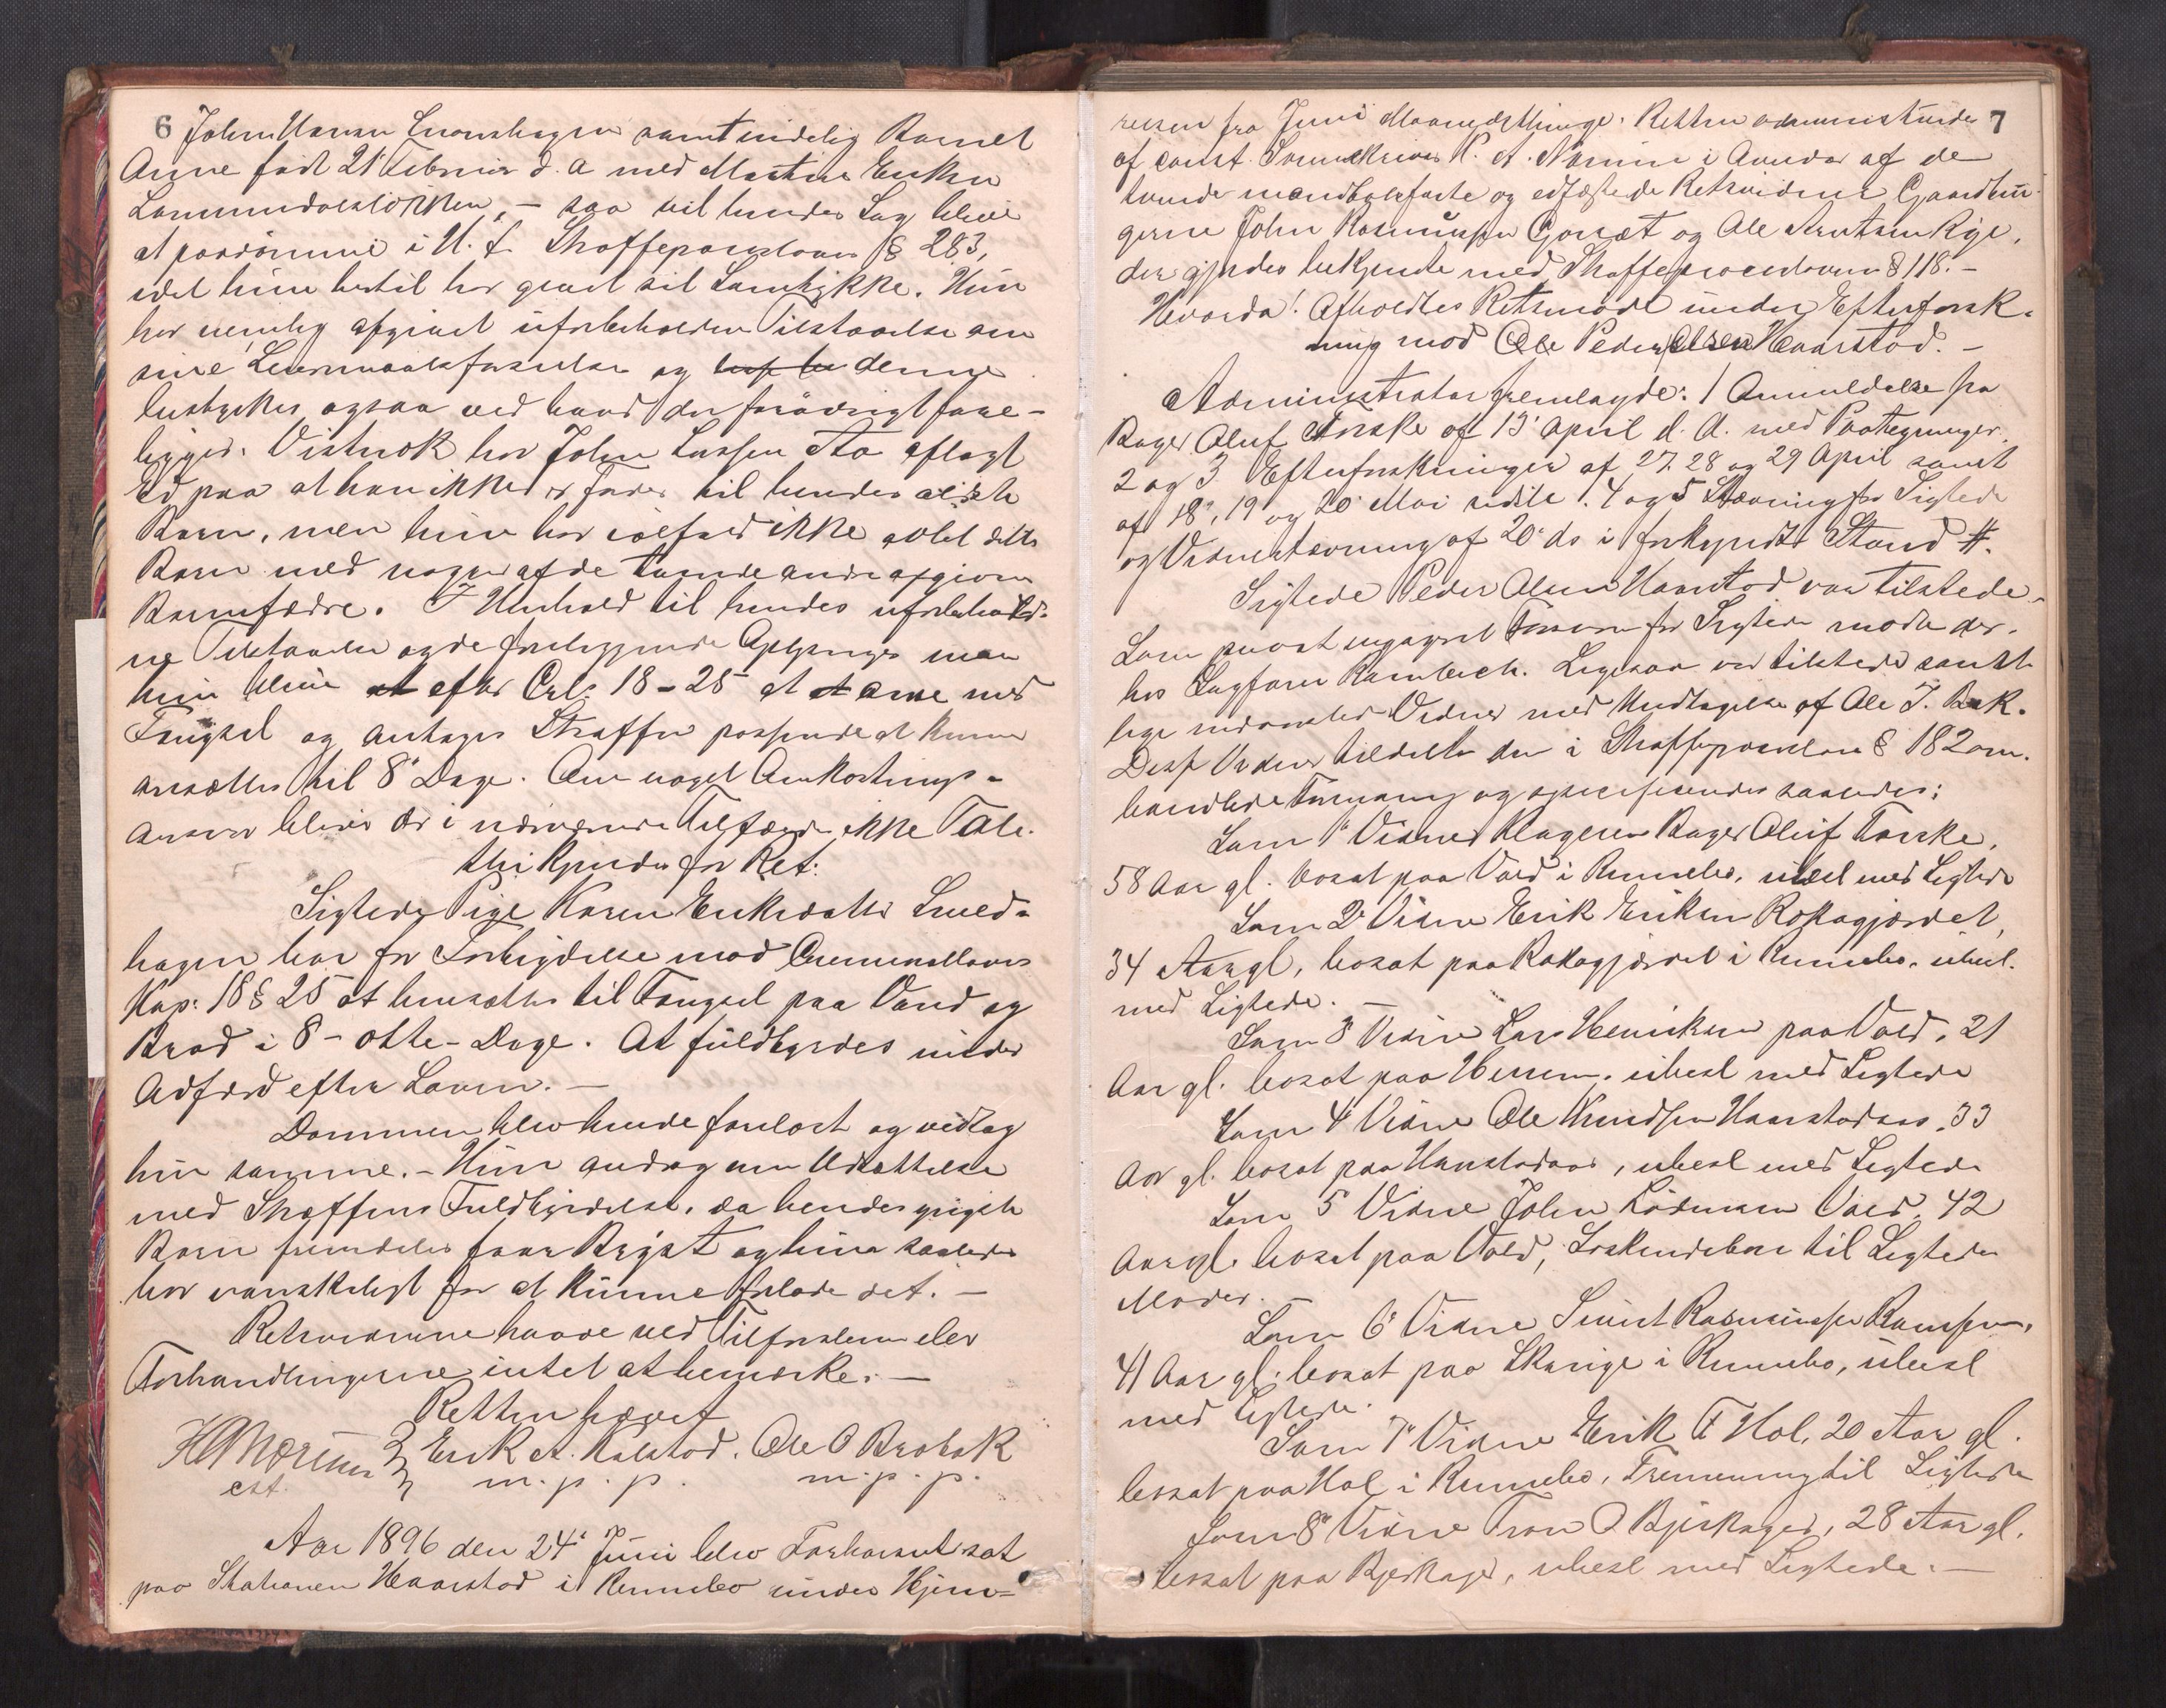 6 John Hansen samt endelig Barnet
Anne født 21 Februar d. A. med Martin Eriksen
saa vil hendes Sag blive
at paadömme i H. t. Straffeproceslovens § 283,
idet hun hertil har givet sit Samtykke. Hun
har nemlig afgivet uforbeholden Tilstaaelse om
sine Leiermaalsforseelser og denne
bestyrkes ogsaa ved hvad der forövrigt fore-
ligger. Vistnok har John Larssen Aa aflagt
Ed paa at han ikke er Fader til hendes ældste
Barn, men hun har ialfald ikke avlet dette
Barn med nogen af de tvende andre opgivne
Barnefædre. I Henhold til hendes uforbehold-
ne Tilstaaelse og de foreliggende Oplysninger maa
hun blive at efter Crl. 18-25 at ansee med
Fængsel og antages Straffen passende at kunne
ansættes til 8 Dage. Om noget Omkostnings-
ansvar bliver der i nærværende Tilfælde ikke Tale.
thi kjendes for Ret:
Sigtede Pige Karen Eriksdatter Smed-
hagen bør for Forbrydelse mod Criminallovens
Kap: 18 § 25 at hensættes til Fængsel paa Vand og
Bröd i 8 - otte - Dage. At fuldbyrdes under
Adfærd efter Loven. —
Dommen blev hende forelæst og vedtog
hun samme. - Hun androg om Udsættelse
med Straffens Fuldbyrdelse, da hendes yngste
Barn fremdeles faar Bryst og hun saaledes
har vanskeligt for at kunne forlade det. —
Retsvidnerne havde ved Tilförslerne eller
Forhandlingerne intet at bemærke. —
Retten hævet
Erik A. Kalstad. Ole O Brobak
cst. m. p. p. m. p. p.
Aar 1896 den 24' Juni blev Forhörsret sat
paa Skationen Haarstad i Rennebo under Hjem-
reisen fra Juni Maanedsthinge. Retten administreredes 7
af const. Sorenskriver i Overvær af de
tvende mandtalsførte og edfæstede Retsvidner Gaardbru-
gerne John Rasmussen Gorsæt og Ole Arntsen Rise,
der gjordes bekjendte med Straffeproceslovens § 118. —
Hvorda! Afholdtes Retsmöde under Efterforsk-
ning mod Ole Peder Olsen Haarstad. —
Administrator fremlagde: 1 Anmeldelse fra
Bager Oluf Torske af 15' April d. A. med Paategninger.
2 og 3 Efterforskninger af 27. 28 og 29 April samt
af 18', 19 og 20' Mai sidstl. 4 og 5 Stævning for Sigtede
og Vidnestævning af 20' ds i forkyndt Stand #.
Sigtede Peder Olsen Haarstad var tilstede.
Som privat engageret Forsvarer for Sigtede mödte der-
hos Sagfører Rambech. Ligesaa var tilstede samt-
lige indvarslede Vidner med Undtagelse af Ole J. Bak.
Disse Vidner tildeltes den i Straffeproceslovens § 182 om-
handlede Formaning og specificeredes saaledes:
Som 1' Vidne Klageren Bager Oluf Torske,
58 Aar gl. bosat paa Vold i Rennebo, ubesl med Sigtede
Som 2' Vidne Erik Eriksen Rokagjærdet,
34 Aar gl, bosat paa Rokagjærdet i Rennebo, ubesl.
med Sigtede. —
Som 3' Vidne Lars Henriksen paa Vold, 21
Aar gl. bosat paa ubesl med Sigtede
Som 4' Vidne Ole Knudsen Haarstadaas, 33
Aar gl. bosat paa Haarstadaas, ubesl med Sigtede
Som 5' Vidne John Vold, 42
Aar gl. bosat paa Vold, Söskendebarn til Sigtedes
Moder. —
Som 6' Vidne Sivert Rasmussen
41 Aar gl. bosat paa Skarige i Rennebo, ubesl
med Sigtede.
Som 7' Vidne Erik Hol, 20 Aar gl.
bosat paa Hol i Rennebo, Fremenning til Sigtede
Som 8' Vidne Tron O Bjerkager, 28 Aar gl.
bosat paa Bjerkager, ubesl med Sigtede. —